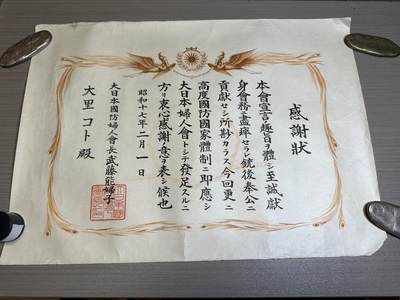 感謝狀
本會宣言ノ趣旨ヲ體シ至誠獻
身會務ニ盡瘁セラレ銃後奉公ニ
貢獻セシ所尠カラス今回更ニ
高度國防國家體制ニ即應シ
大日本婦人會トシテ發足スルニ
方リ衷心感謝ノ意ヲ表シ候也
昭和十七年二月一日
大日本國防婦人會長武藤能婦子
大里コト殿